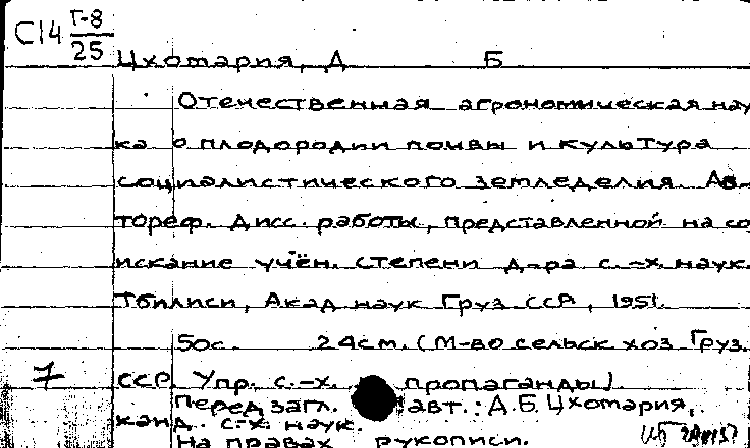 С14 Г-8
25
Цхотария, Д Б
Отечественная агрономическая нау
ка о плодородии почвы и культура
социалистического земледелия. Ав-
тореф. Дисс. работы, представленной на со
искание учён. степени д-ра с.-х. наук.
Тбилиси, Акад наук Груз ССР, 1951.
50с. 24см. (М-во сельск хоз. Груз.
7 ССР. Упр. с.-х. пропаганды).
Перед загл. авт.: Д.Б. Цхотария,
канд. с-х. наук.
На правах рукописи.